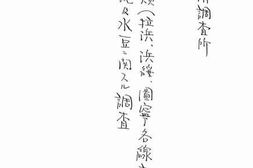 調査所
(拉浜、浜綏、圖寧各線
及水豆ニ関スル調査